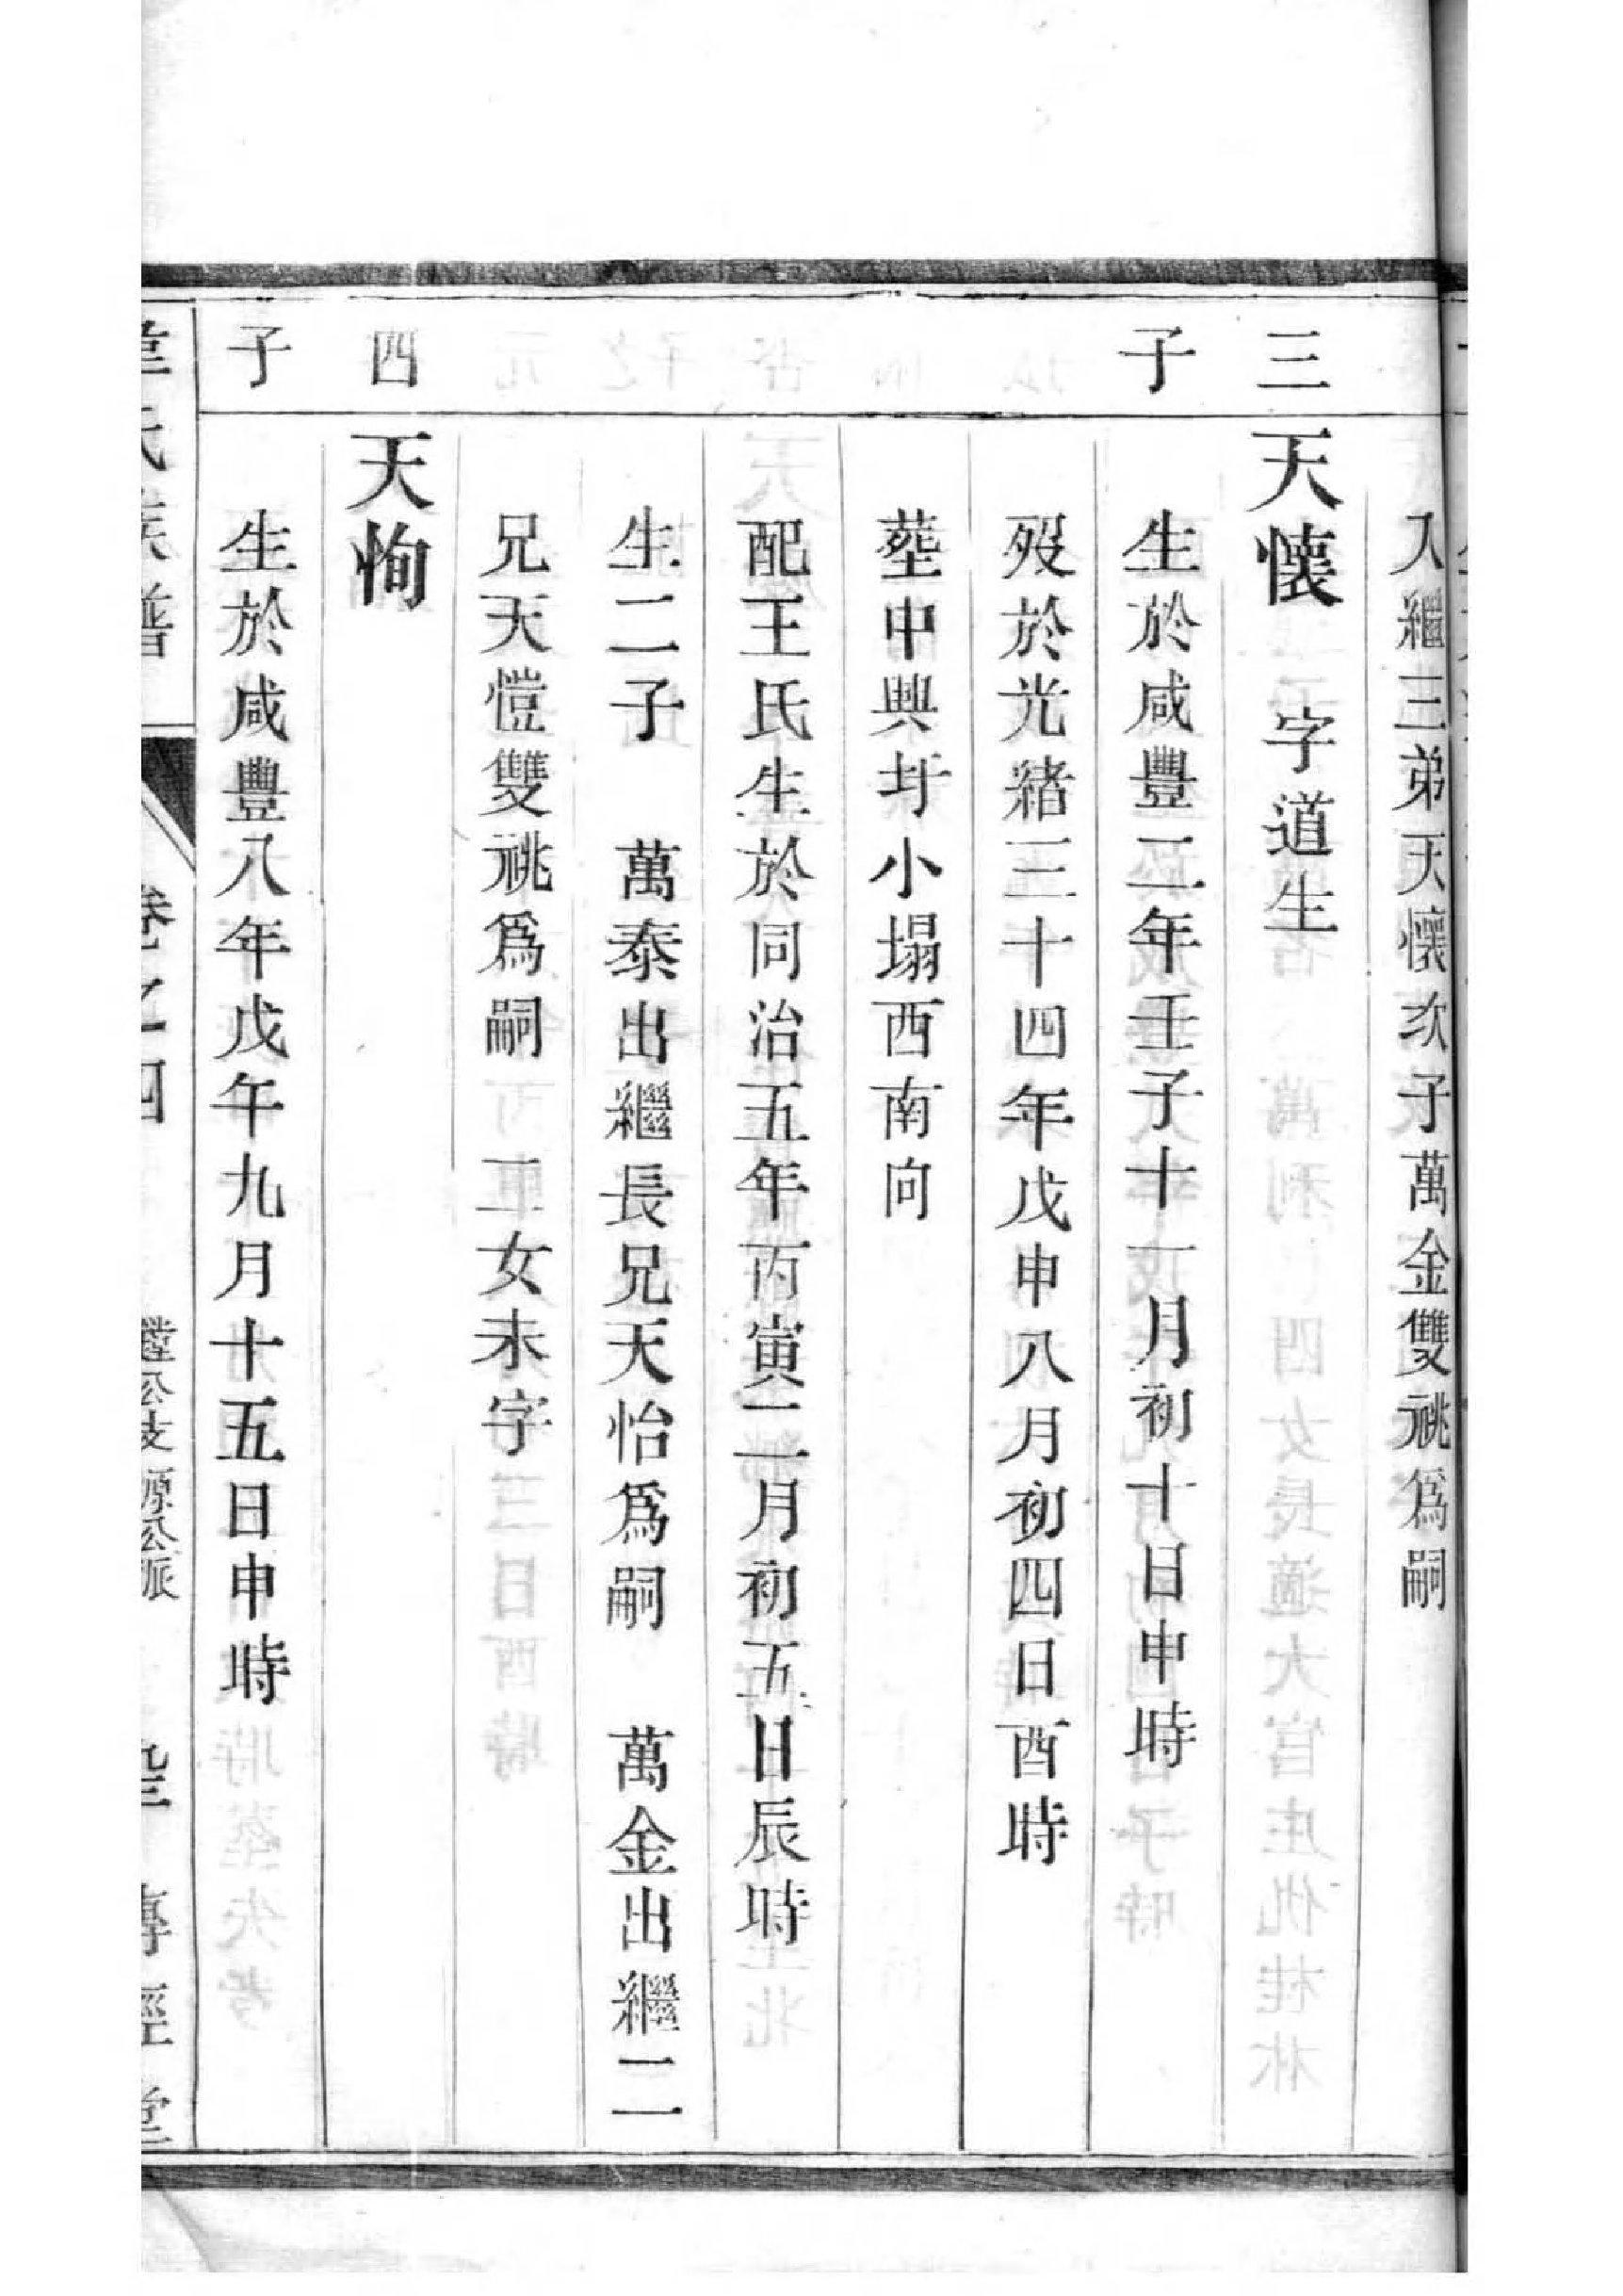 入繼三弟天懷次子萬金雙祧爲嗣
三
天懷 字道生
子
生於咸豐二年壬子十一月初十日申時
歿於光緒三十四年戊申八月初四日酉時
塟中興圩小塌西南向
配王氏生於同治五年丙寅二月初五日辰時
生二子 萬泰出繼長兄天怡爲嗣 萬金出繼二
兄天愷雙祧爲嗣 一女未字
四
天恂
子
生於咸豐八年戊午九月十五日申時
氏族譜 卷之四 公支源公派 傳經堂